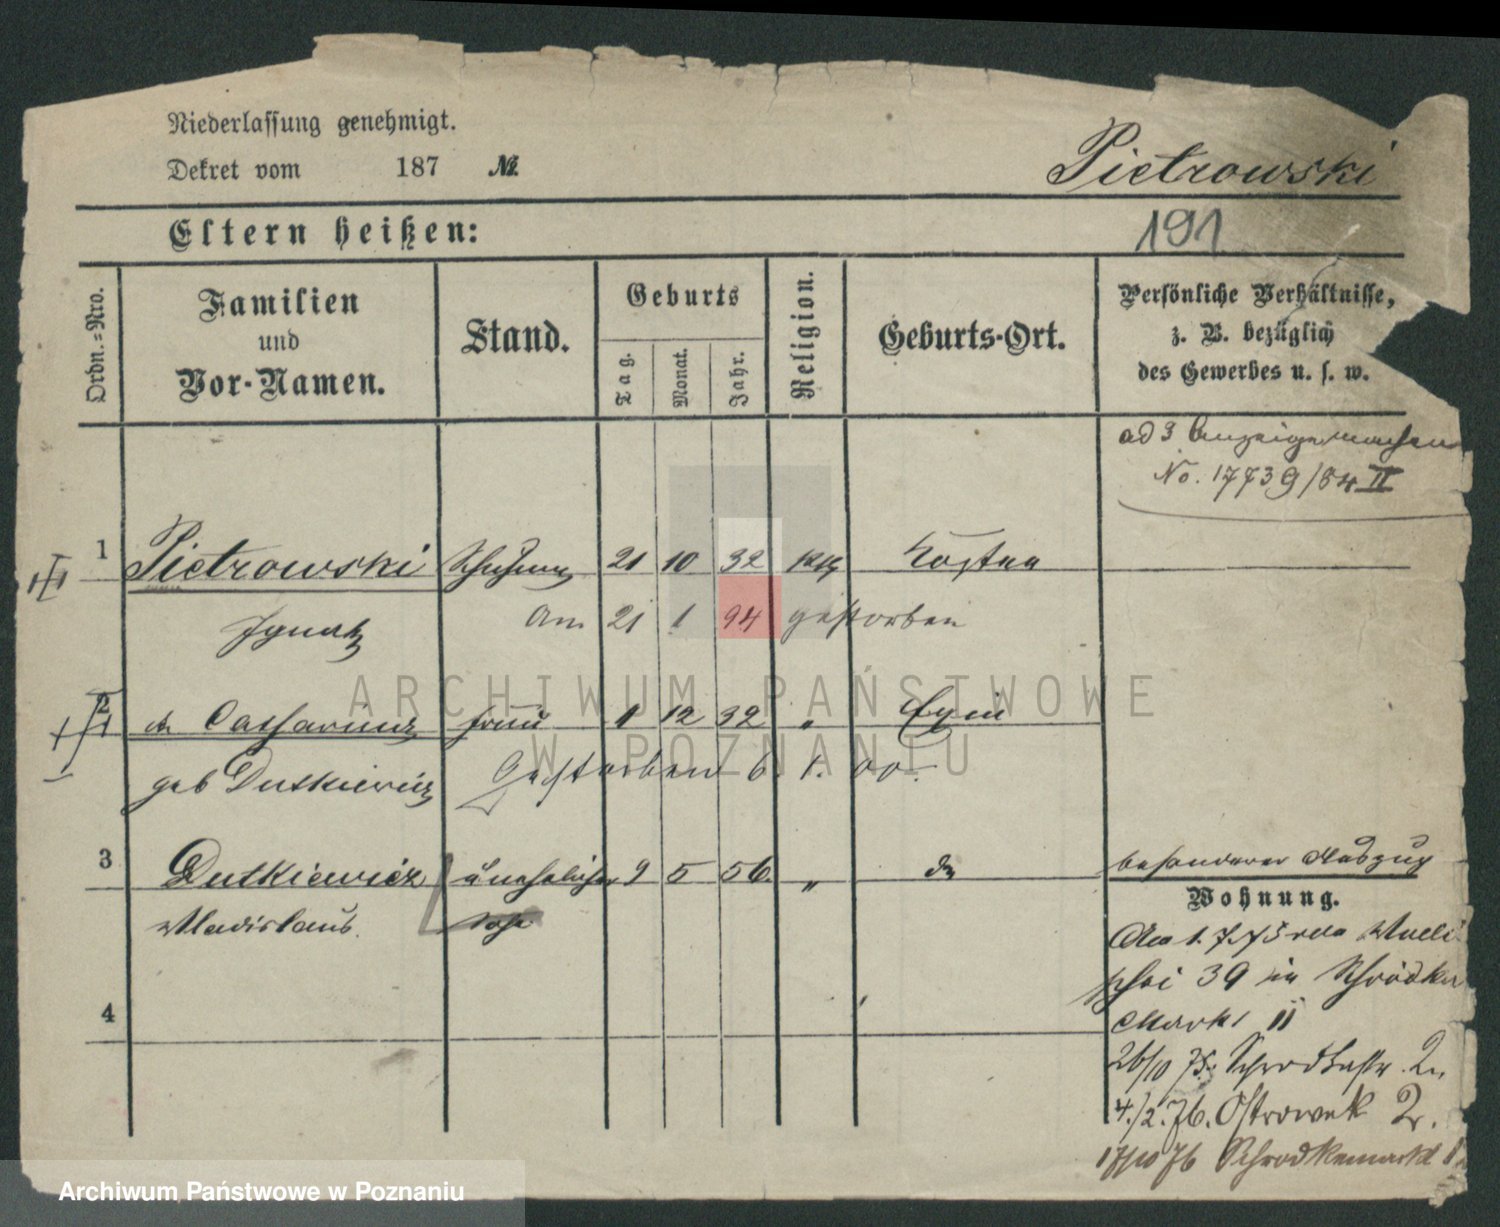 Niederlassung genehmigt.
Dekret vom 187 №
Pietrowski
191
Eltern heißen:
Ordn.=Nro.
Familien
und
Vor-Namen.
Stand.
Geburts
Tag.
Monat.
Jahr.
Religion.
Geburts-Ort.
Persönliche Verhältnisse,
z. B. bezüglich
des Gewerbes u. s. w.
ad 3 Anzeige machen
No. 17739/84 II
1 Pietrowski 21 10 32 kath
Ignatz Am 21 1 94 gestorben
2 Catharina Frau 1 12 32 " Exin
geb Dutkiewicz Gestorben 6. 1. 00.
3 Dutkiewicz unehelicher 9 5 56 " do
besonderer Auszug
Wladislaus Sohn
Wohnung.
39 in Schrodka
4
Markt 11
26/10 75. 2
4./2. 76. Ostrowek 2.
17/10 76 Schrodkamarkt
ARCHIWUM PAŃSTWOWE
W POZNANIU
Archiwum Państwowe w Poznaniu